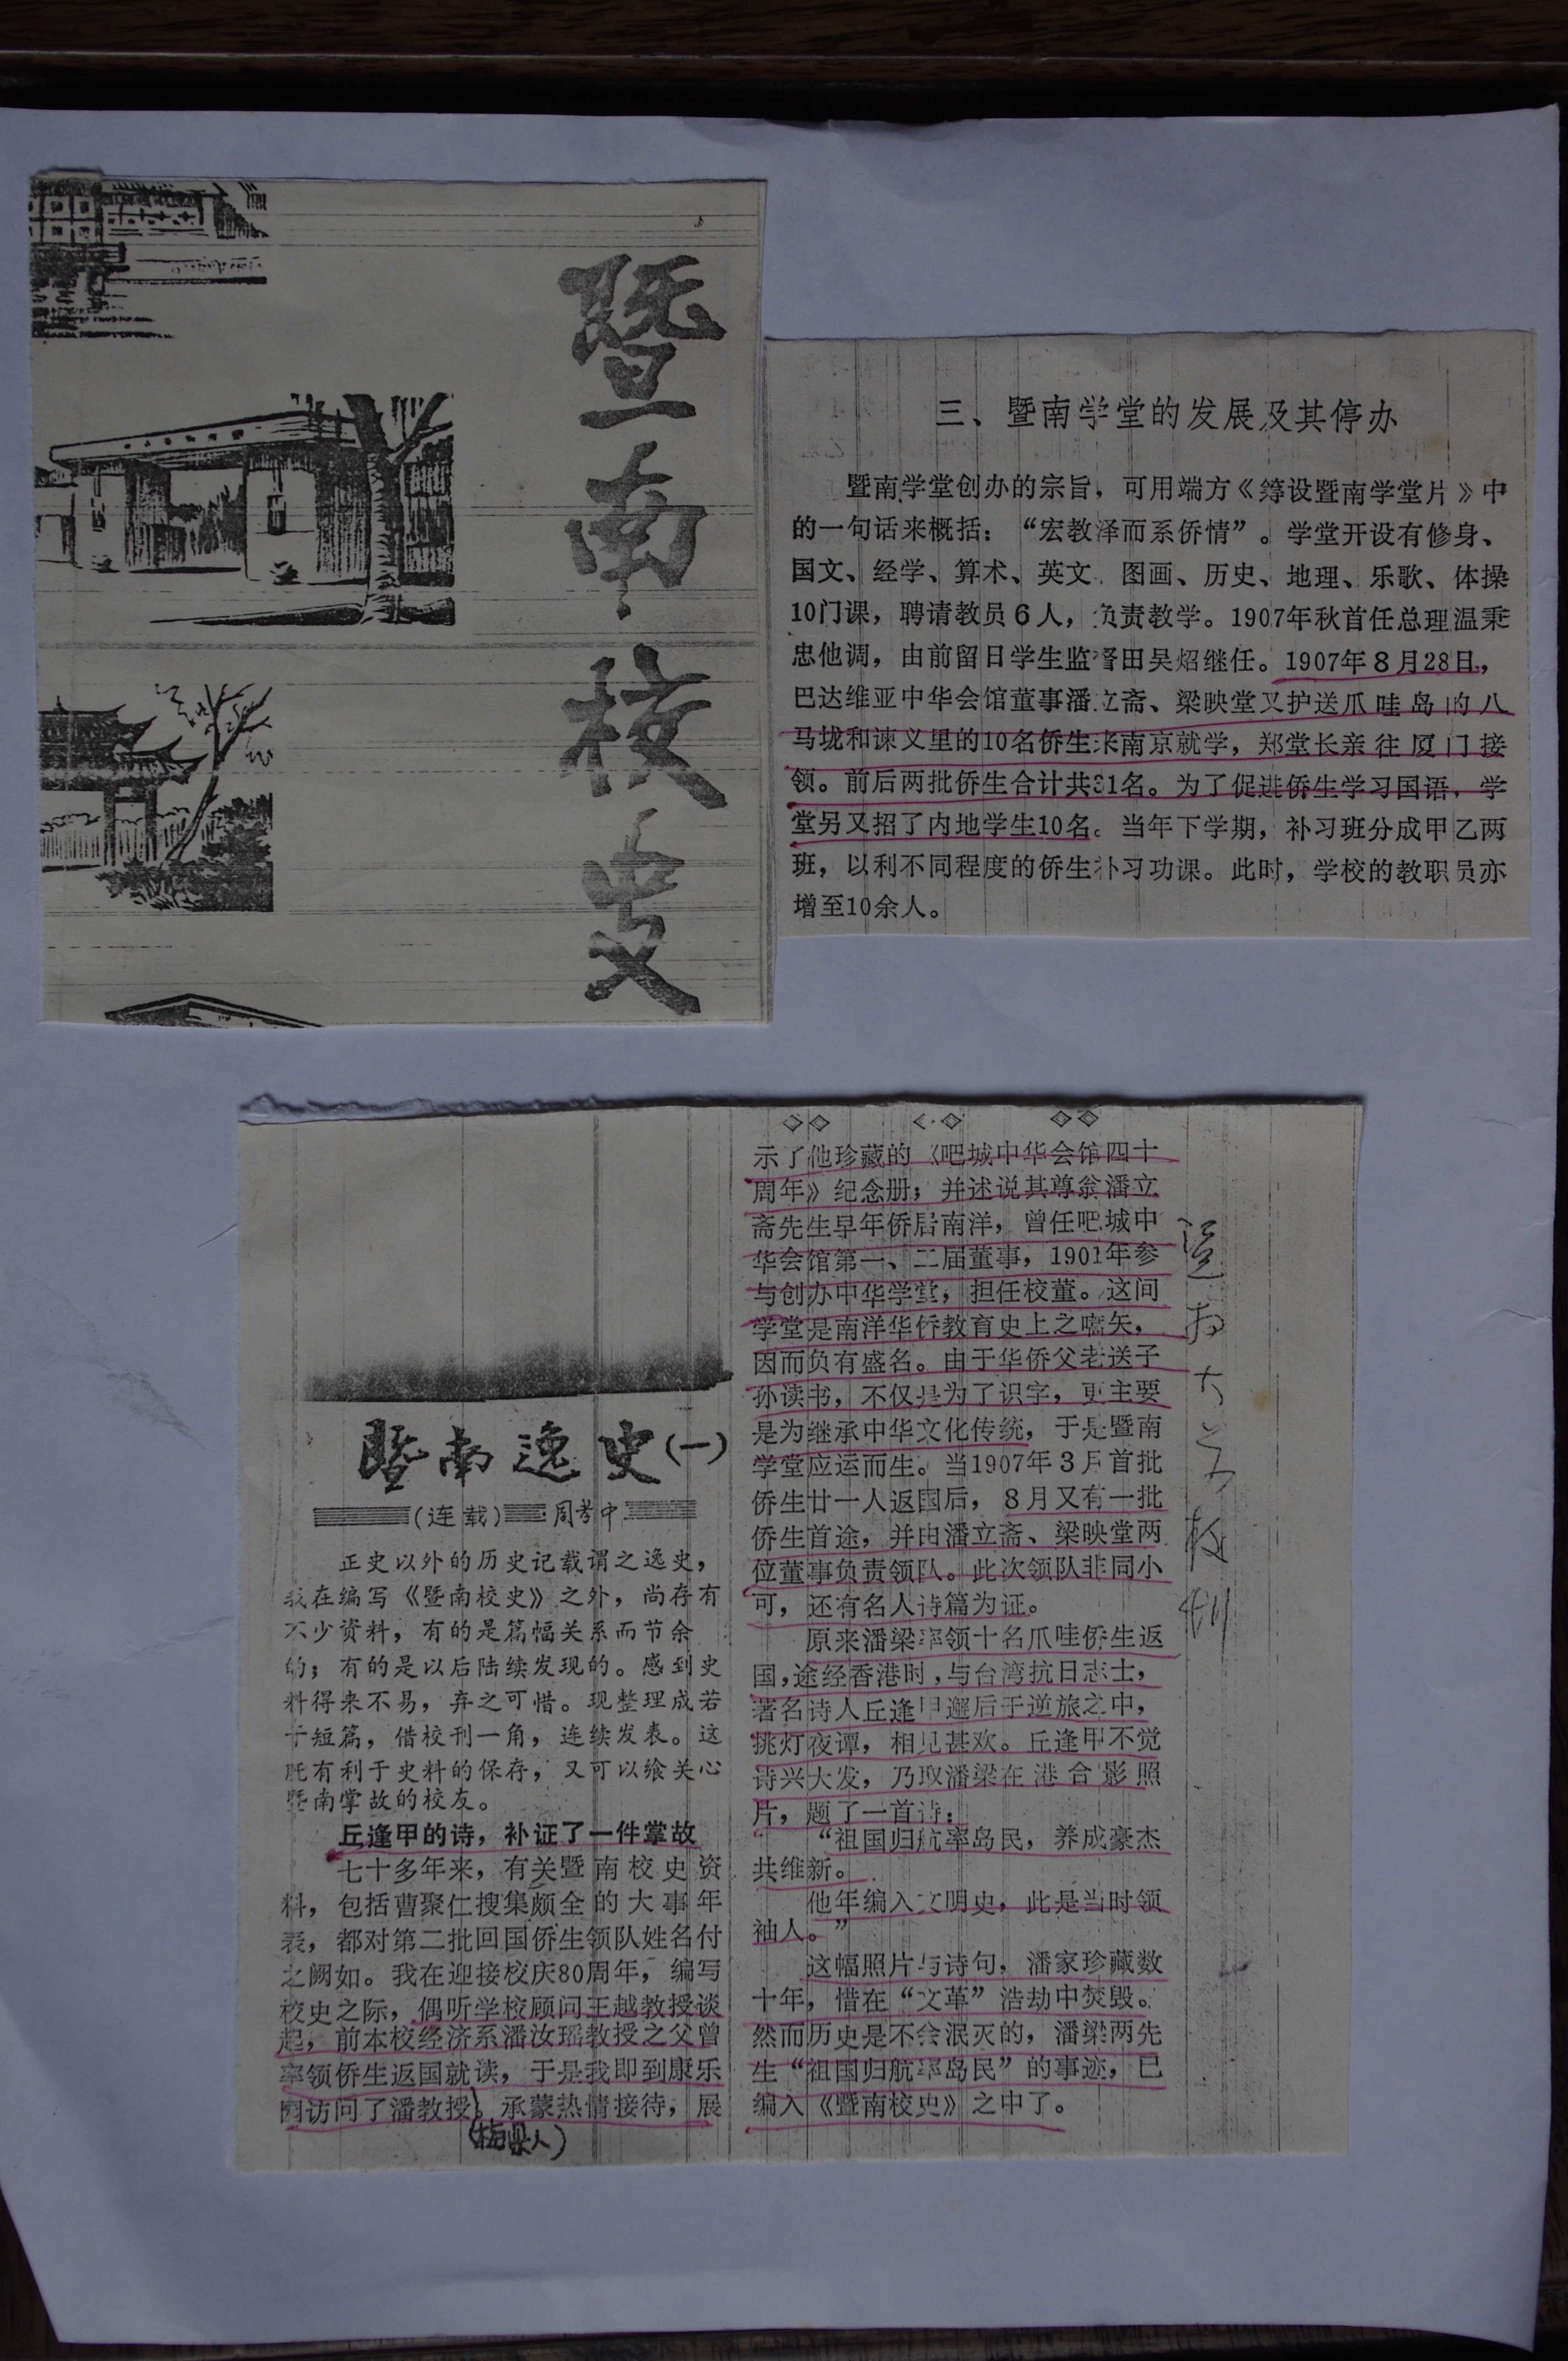 暨南校史
三、暨南学堂的发展及其停办
暨南学堂创办的宗旨，可用端方《筹设暨南学堂片》中
的一句话来概括：“宏教泽而系侨情”。学堂开设有修身、
国文、经学、算术、英文、图画、历史、地理、乐歌、体操
10门课，聘请教员6人，负责教学。1907年秋首任总理温秉
忠他调，由前留日学生监督田吴炤继任。1907年8月28日，
巴达维亚中华会馆董事潘立斋、梁映堂又护送爪哇岛的八
马垅和谏义里的10名侨生来南京就学，郑堂长亲往厦门接
领。前后两批侨生合计共31名。为了促进侨生学习国语，学
堂另又招了内地学生10名。当年下学期，补习班分成甲乙两
班，以利不同程度的侨生补习功课。此时，学校的教职员亦
增至10余人。
暨南逸史(一)
(连载) 周孝中
正史以外的历史记载谓之逸史，
我在编写《暨南校史》之外，尚存有
不少资料，有的是篇幅关系而节余
的；有的是以后陆续发现的。感到史
料得来不易，弃之可惜。现整理成若
干短篇，借校刊一角，连续发表。这
既有利于史料的保存，又可以飨关心
暨南掌故的校友。
丘逢甲的诗，补证了一件掌故
七十多年来，有关暨南校史资
料，包括曹聚仁搜集颇全的大事年
表，都对第二批回国侨生领队姓名付
之阙如。我在迎接校庆80周年，编写
校史之际，偶听学校顾问王越教授谈
起，前本校经济系潘汝瑶教授之父曾
率领侨生返国就读，于是我即到康乐
园访问了潘教授，承蒙热情接待，展
(梅县人)
示了他珍藏的《吧城中华会馆四十
周年》纪念册；并述说其尊翁潘立
斋先生早年侨居南洋，曾任吧城中
华会馆第一、二届董事，1901年参
与创办中华学堂，担任校董。这间
学堂是南洋华侨教育史上之嚆矢，
因而负有盛名。由于华侨父老送子
孙读书，不仅是为了识字，更主要
是为继承中华文化传统，于是暨南
学堂应运而生。当1907年3月首批
侨生廿一人返国后，8月又有一批
侨生首途，并由潘立斋、梁映堂两
位董事负责领队。此次领队非同小
可，还有名人诗篇为证。
原来潘梁率领十名爪哇侨生返
国，途经香港时，与台湾抗日志士，
著名诗人丘逢甲邂后于逆旅之中，
挑灯夜谭，相见甚欢。丘逢甲不觉
诗兴大发，乃取潘梁在港合影照
片，题了一首诗：
“祖国归航率岛民，养成豪杰
共维新。
他年编入文明史，此是当时领
袖人。”
这幅照片与诗句，潘家珍藏数
十年，惜在“文革”浩劫中焚毁。
然而历史是不会泯灭的，潘梁两先
生“祖国归航率岛民”的事迹，已
编入《暨南校史》之中了。